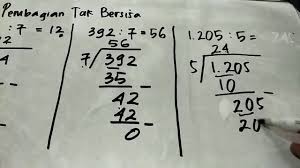 Pembagian Tak Bersisa
: 7 = 12
392 : 7 = 56
56
7 392
35 -
42
42 -
0
1.205 : 5 =
24
5 1.205
10 -
205
20